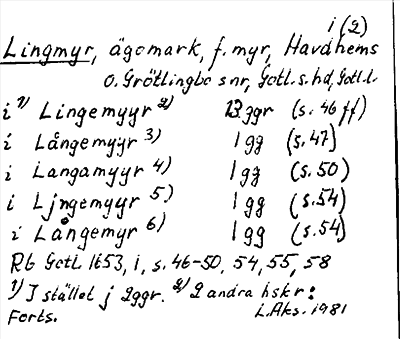 i (2)
Lingmyr, ägomark, f. myr, Havdhems
o. Grötlingbo snr, Gotl. s. hd, Gotl. l.
i 1) Lingemyyr 2) 13 ggr (s. 46 ff)
i Långemyyr 3) 1 gg (s. 47)
i Langamyyr 4) 1 gg (s. 50)
i Ljngemyyr 5) 1 gg (s. 54)
i Långemyr 6) 1 gg (s. 54)
Rb Gotl. 1653, 1, s. 46-50, 54, 55, 58
1) I stället j 2ggr. 2) 2 andra hskr:
Forts. L.Aks. 1981